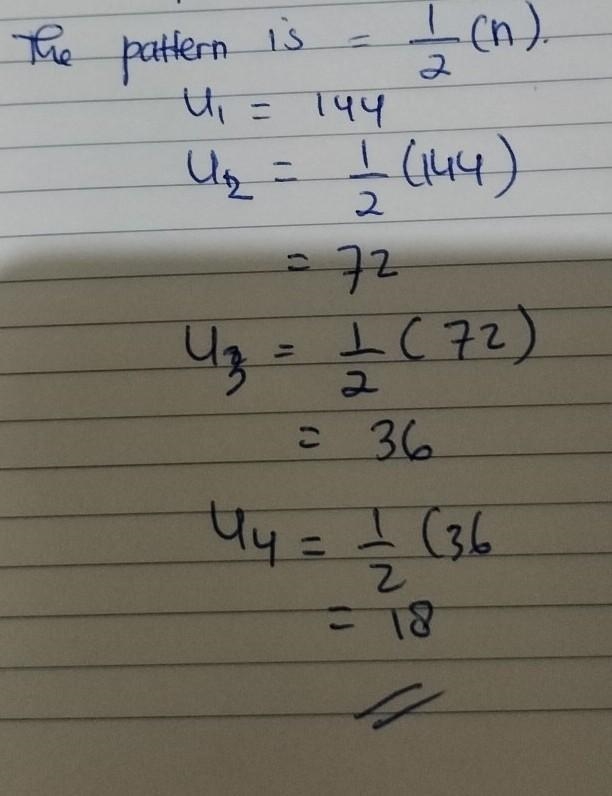 The pattern is = 1/2 (n).
U1 = 144
U2 = 1/2 (144)
= 72
U3 = 1/2 (72)
= 36
U4 = 1/2 (36
= 18